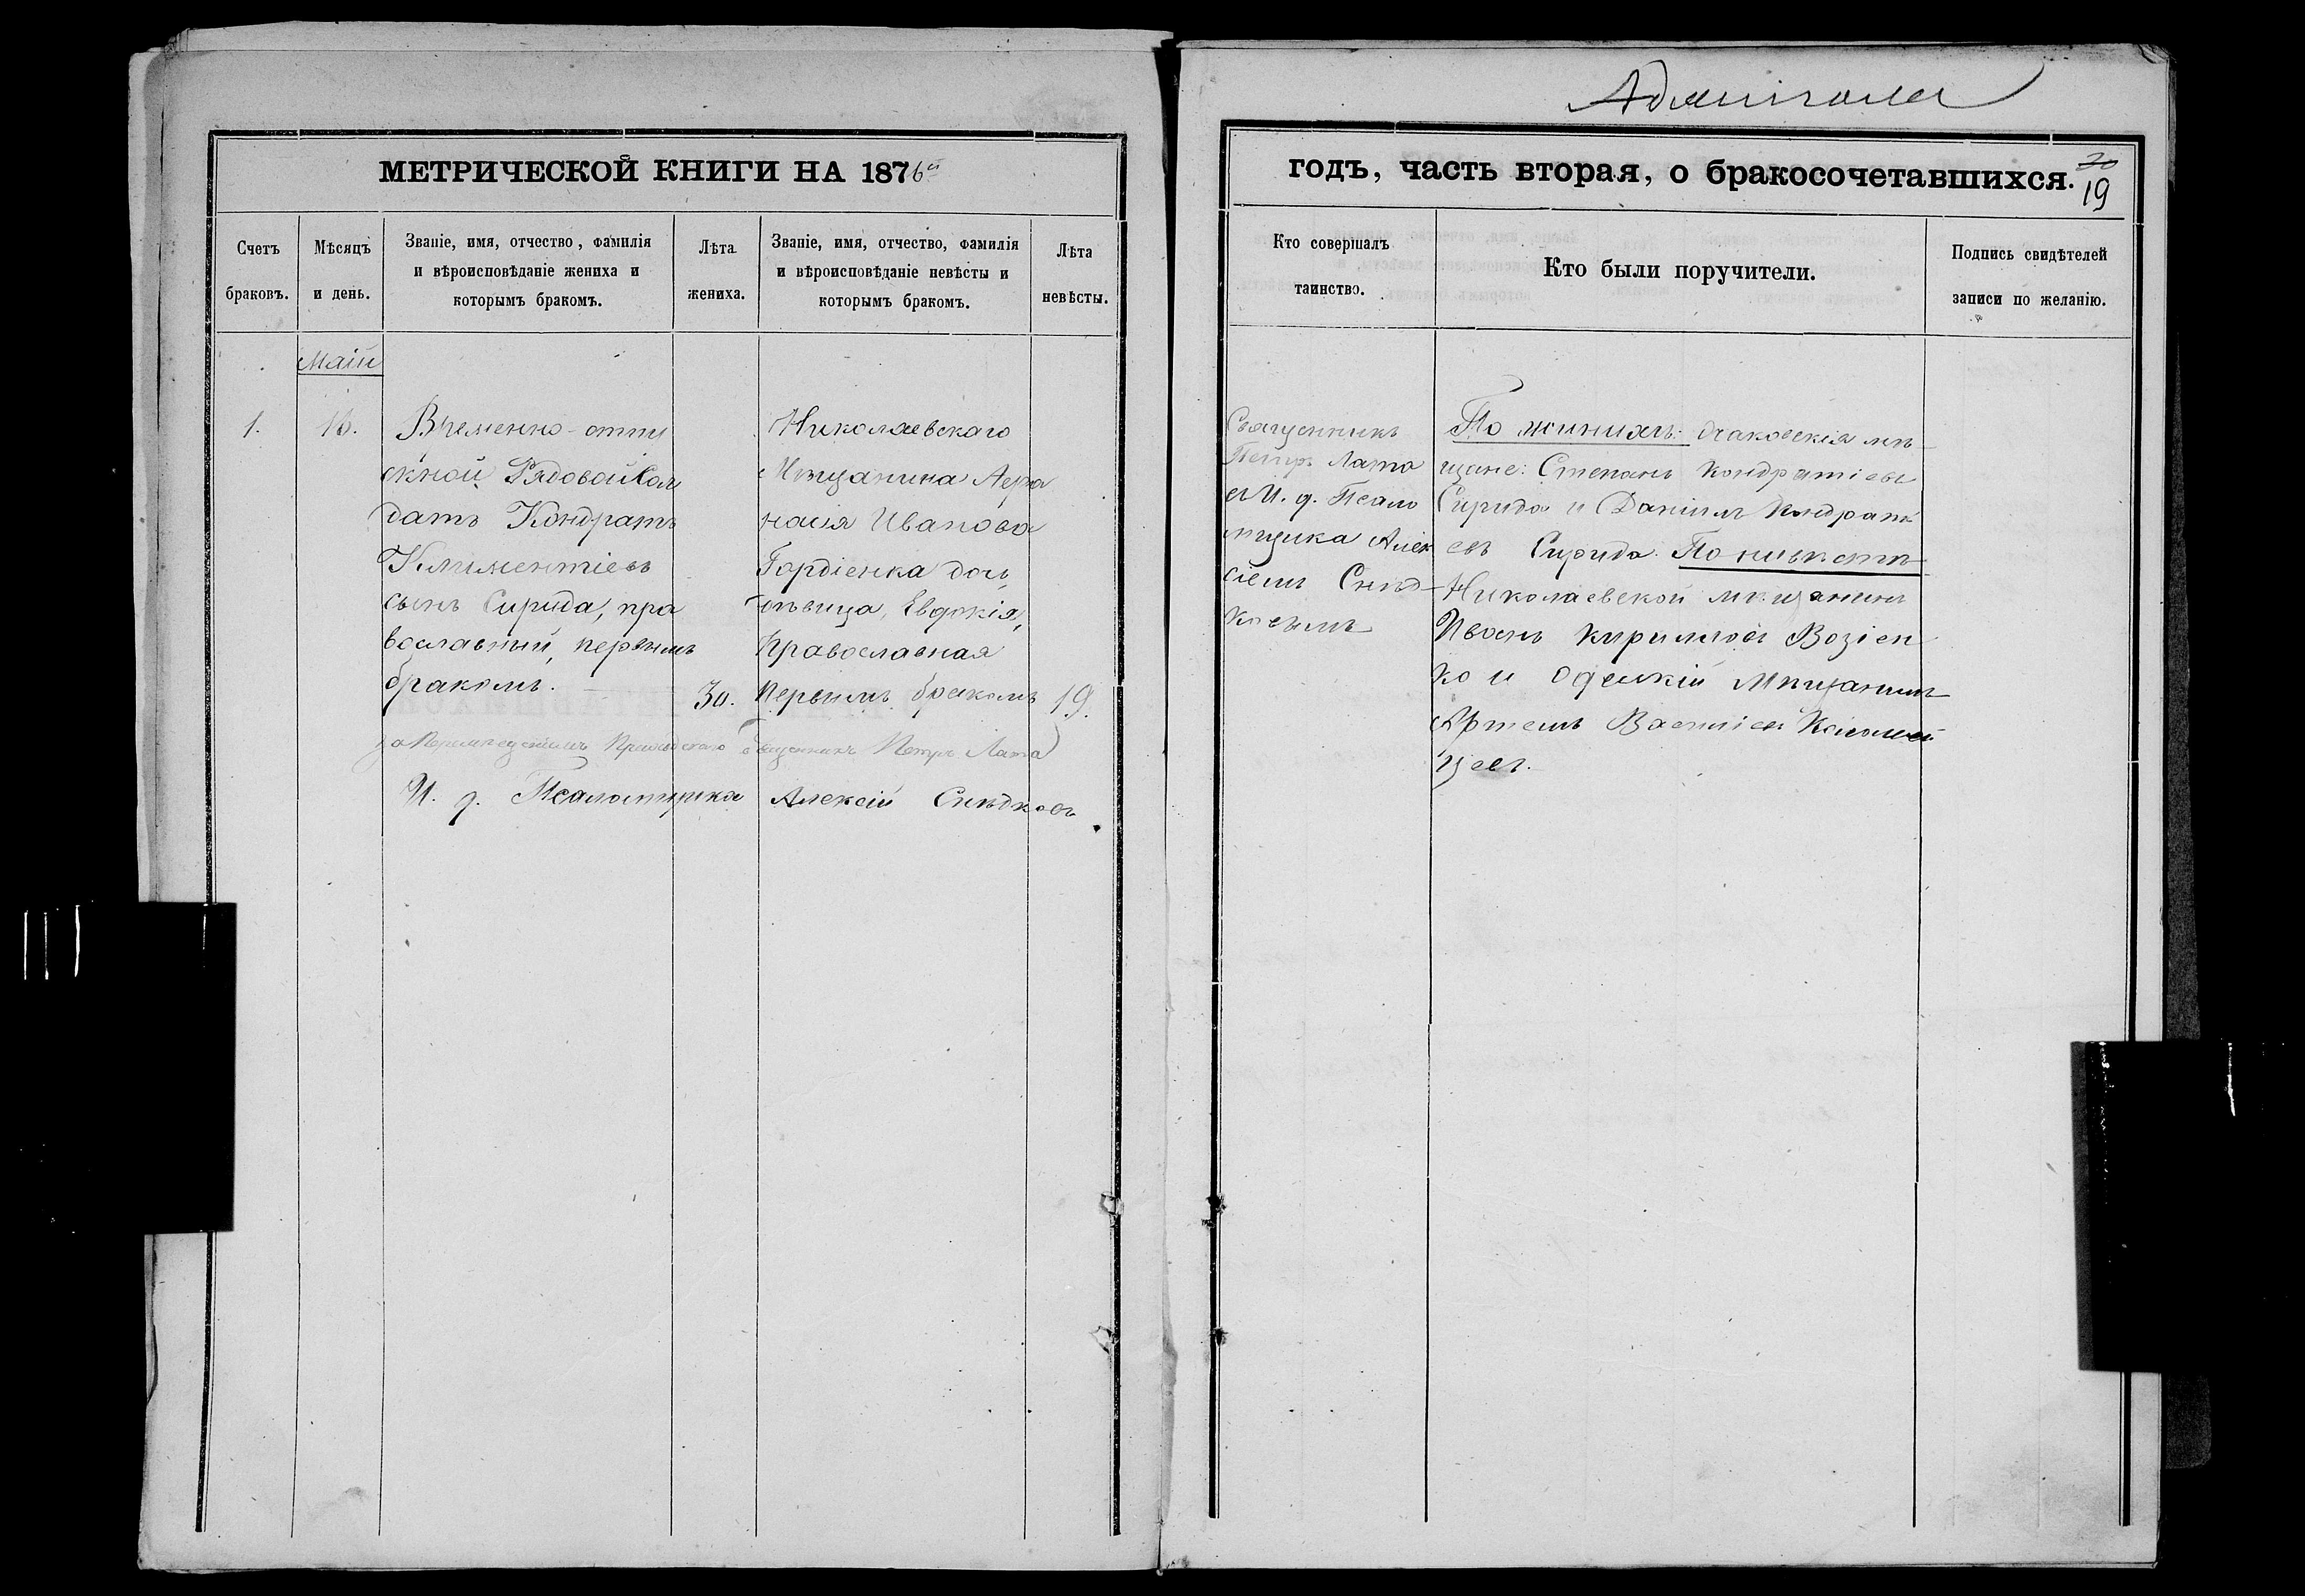 Адмиігала
МЕТРИЧЕСКОЙ КНИГИ НА 1876й
годъ, часть вторая, о бракосочетавшихся.
20
19
Счетъ браковъ.
Мѣсяцъ и день.
Званіе, имя, отчество, фамилія
и вѣроисповѣданіе жениха и
которымъ бракомъ.
Лѣта жениха.
Званіе, имя, отчество, фамилія
и вѣроисповѣданіе невѣсты и
которымъ бракомъ.
Лѣта невѣсты.
Кто совершалъ
таинство.
Кто были поручители.
Подпись свидѣтелей
записи по желанію.
Маій
1.
16.
Временно-отпу
скной Рядовой Сол
датъ Кондратъ
Климентіевъ
сынъ Сирида, пра
вославный, первымъ
бракомъ.
30.
Николаевскаго
Мѣщанина Афа
насія Иванова
Гордіенка дочь
дѣвица, Евдокія,
Православная
Первымъ бракомъ
19.
Священникъ Петръ Лата
И. д. Псаломщика Алексій Снѣдковъ
Священникъ
Петръ Лата
съ И. д. Псало
мщика Алек
сіемъ Снѣд
ковымъ
По женихѣ: Очаковскія мѣ
щане: Степанъ Кондратіевъ
Сирида и Даніилъ Кондраті
евъ Сирида. По невѣстѣ
Николаевской мѣщанинъ
Иванъ Кириловъ Возіен
ко и Одескій Мѣщанинъ
Артемъ Василіевъ Коломей
цевъ.